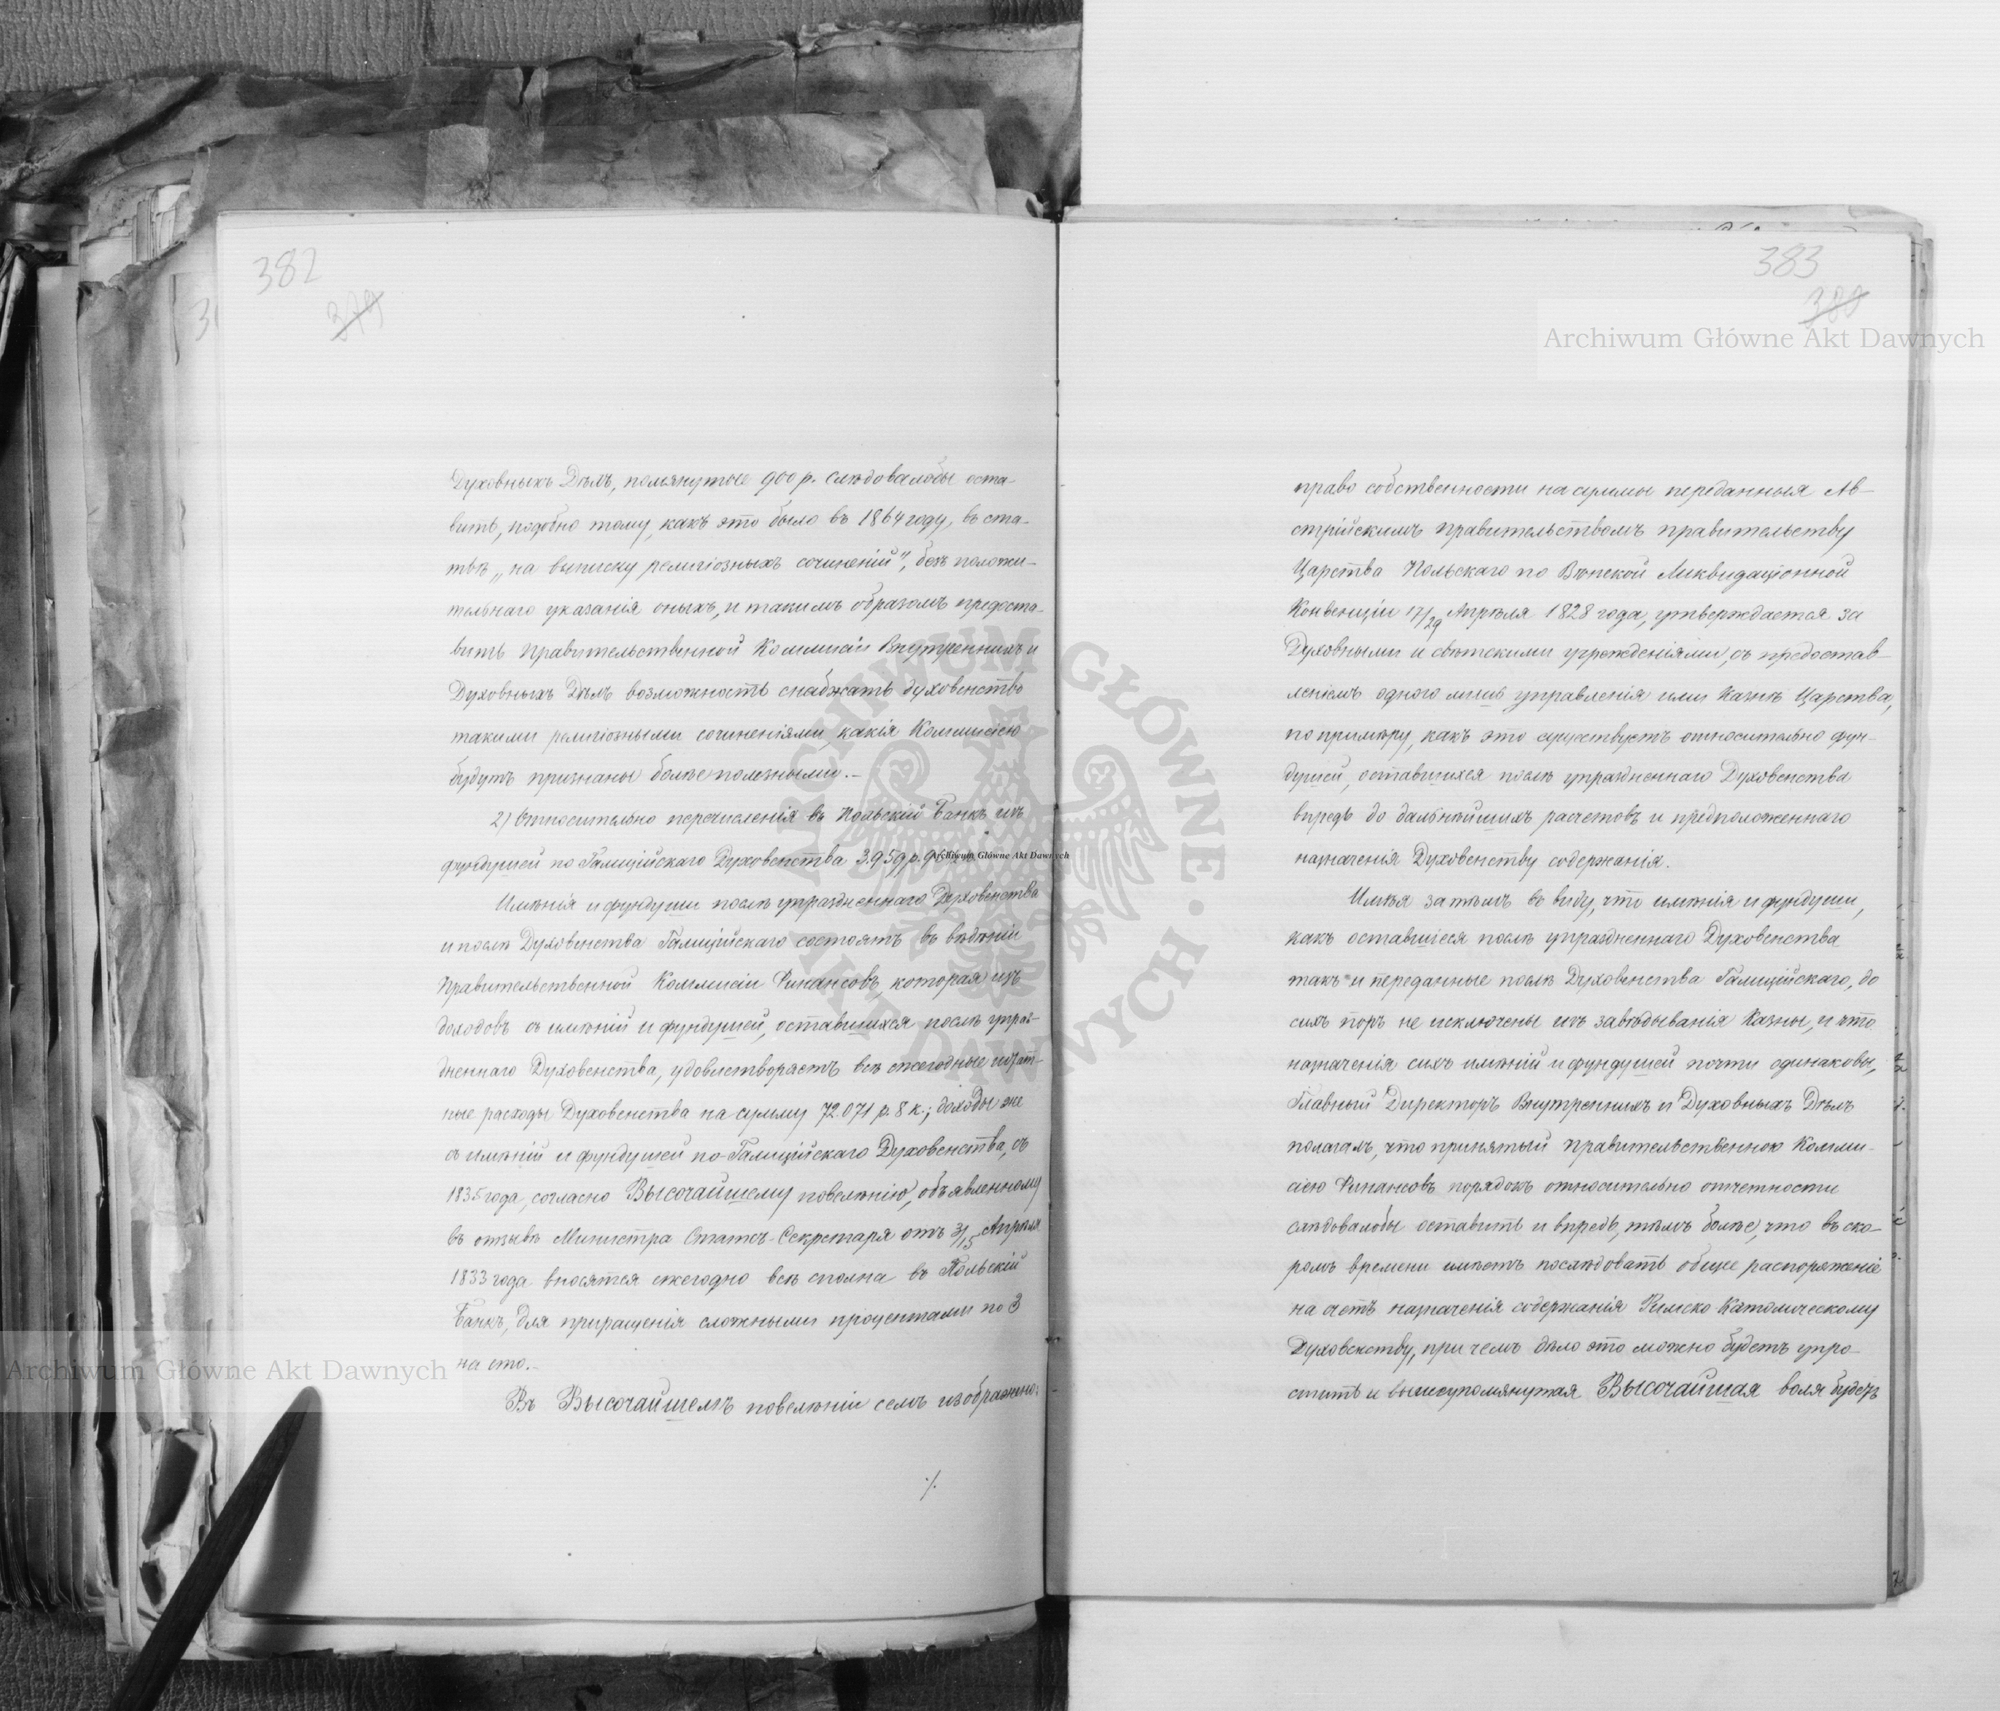 382
379
Духовныхъ Дѣлъ, помянутые 900 р. слѣдовалобы оста-
вить, подобно тому, какъ это было въ 1864 году, въ ста-
тьѣ „на выписку религіозныхъ сочиненій", безъ положи-
тельнаго указанія оныхъ, и такимъ образомъ предоста-
вить Правительственной Коммисіи Внутреннихъ и
Духовныхъ Дѣлъ возможность снабжать духовенство
такими религіозными сочиненіями, какія Коммисіею
будутъ признаны болѣе полезными.—
2) Относительно перечисленія въ Польскій Банкъ изъ
фундушей по Галиційскаго Духовенства 3.959 р.
Имѣнія и фундуши послѣ упраздненнаго Духовенства
и послѣ Духовенства Галиційскаго состоятъ въ вѣдѣніи
Правительственной Коммисіи Финансовъ, которая изъ
доходовъ съ имѣній и фундушей, оставшихся послѣ упраз-
дненнаго Духовенства, удовлетворяетъ всѣ ежегодные штат-
ные расходы Духовенства на сумму 72.071 р. 8 к.; доходы же
съ имѣній и фундушей по-Галиційскаго Духовенства, съ
1835 года, согласно Высочайшему повелѣнію, объявленному
въ отзывѣ Министра Статсъ-Секретаря отъ 3/15 Апрѣля
1833 года вносятся ежегодно всѣ сполна въ Польскій
Банкъ, для приращенія сложными процентами по 3
на сто.—
Въ Высочайшемъ повелѣніи семъ изображено:
./.
383
380
право собственности на суммы переданныя Ав-
стрійскимъ правительствомъ правительству
Царства Польскаго по Вѣнской Ликвидаціонной
Конвенціи 17/29 Апрѣля 1828 года, утверждается за
Духовными и свѣтскими учрежденіями, съ предостав-
леніемъ одного лишь управленія ими Казнѣ Царства,
по примѣру, какъ это существуетъ относительно фун-
душей, оставшихся послѣ упраздненнаго Духовенства
впредь до дальнѣйшихъ расчетовъ и предположеннаго
назначенія Духовенству содержанія.
Имѣя затѣмъ въ виду, что имѣнія и фундуши,
какъ оставшіеся послѣ упраздненнаго Духовенства
такъ и переданные послѣ Духовенства Галиційскаго, до
сихъ поръ не исключены изъ завѣдыванія Казны, и что
назначенія сихъ имѣній и фундушей почти одинаковы,
Главный Директоръ Внутреннихъ и Духовныхъ Дѣлъ
полагалъ, что принятый Правительственною Комми-
сіею Финансовъ порядокъ относительно отчетности
слѣдовалобы оставить и впредь, тѣмъ болѣе, что въ ско-
ромъ времени имѣетъ послѣдовать общее распоряженіе
на счетъ назначенія содержанія Римско-Католическому
Духовенству, при чемъ дѣло это можно будетъ упро-
стить и вышеупомянутая Высочайшая воля будетъ
Archiwum Główne Akt Dawnych
Archiwum Główne Akt Dawnych
Archiwum Główne Akt Dawnych
ARCHIWUM GŁÓWNE AKT DAWNYCH